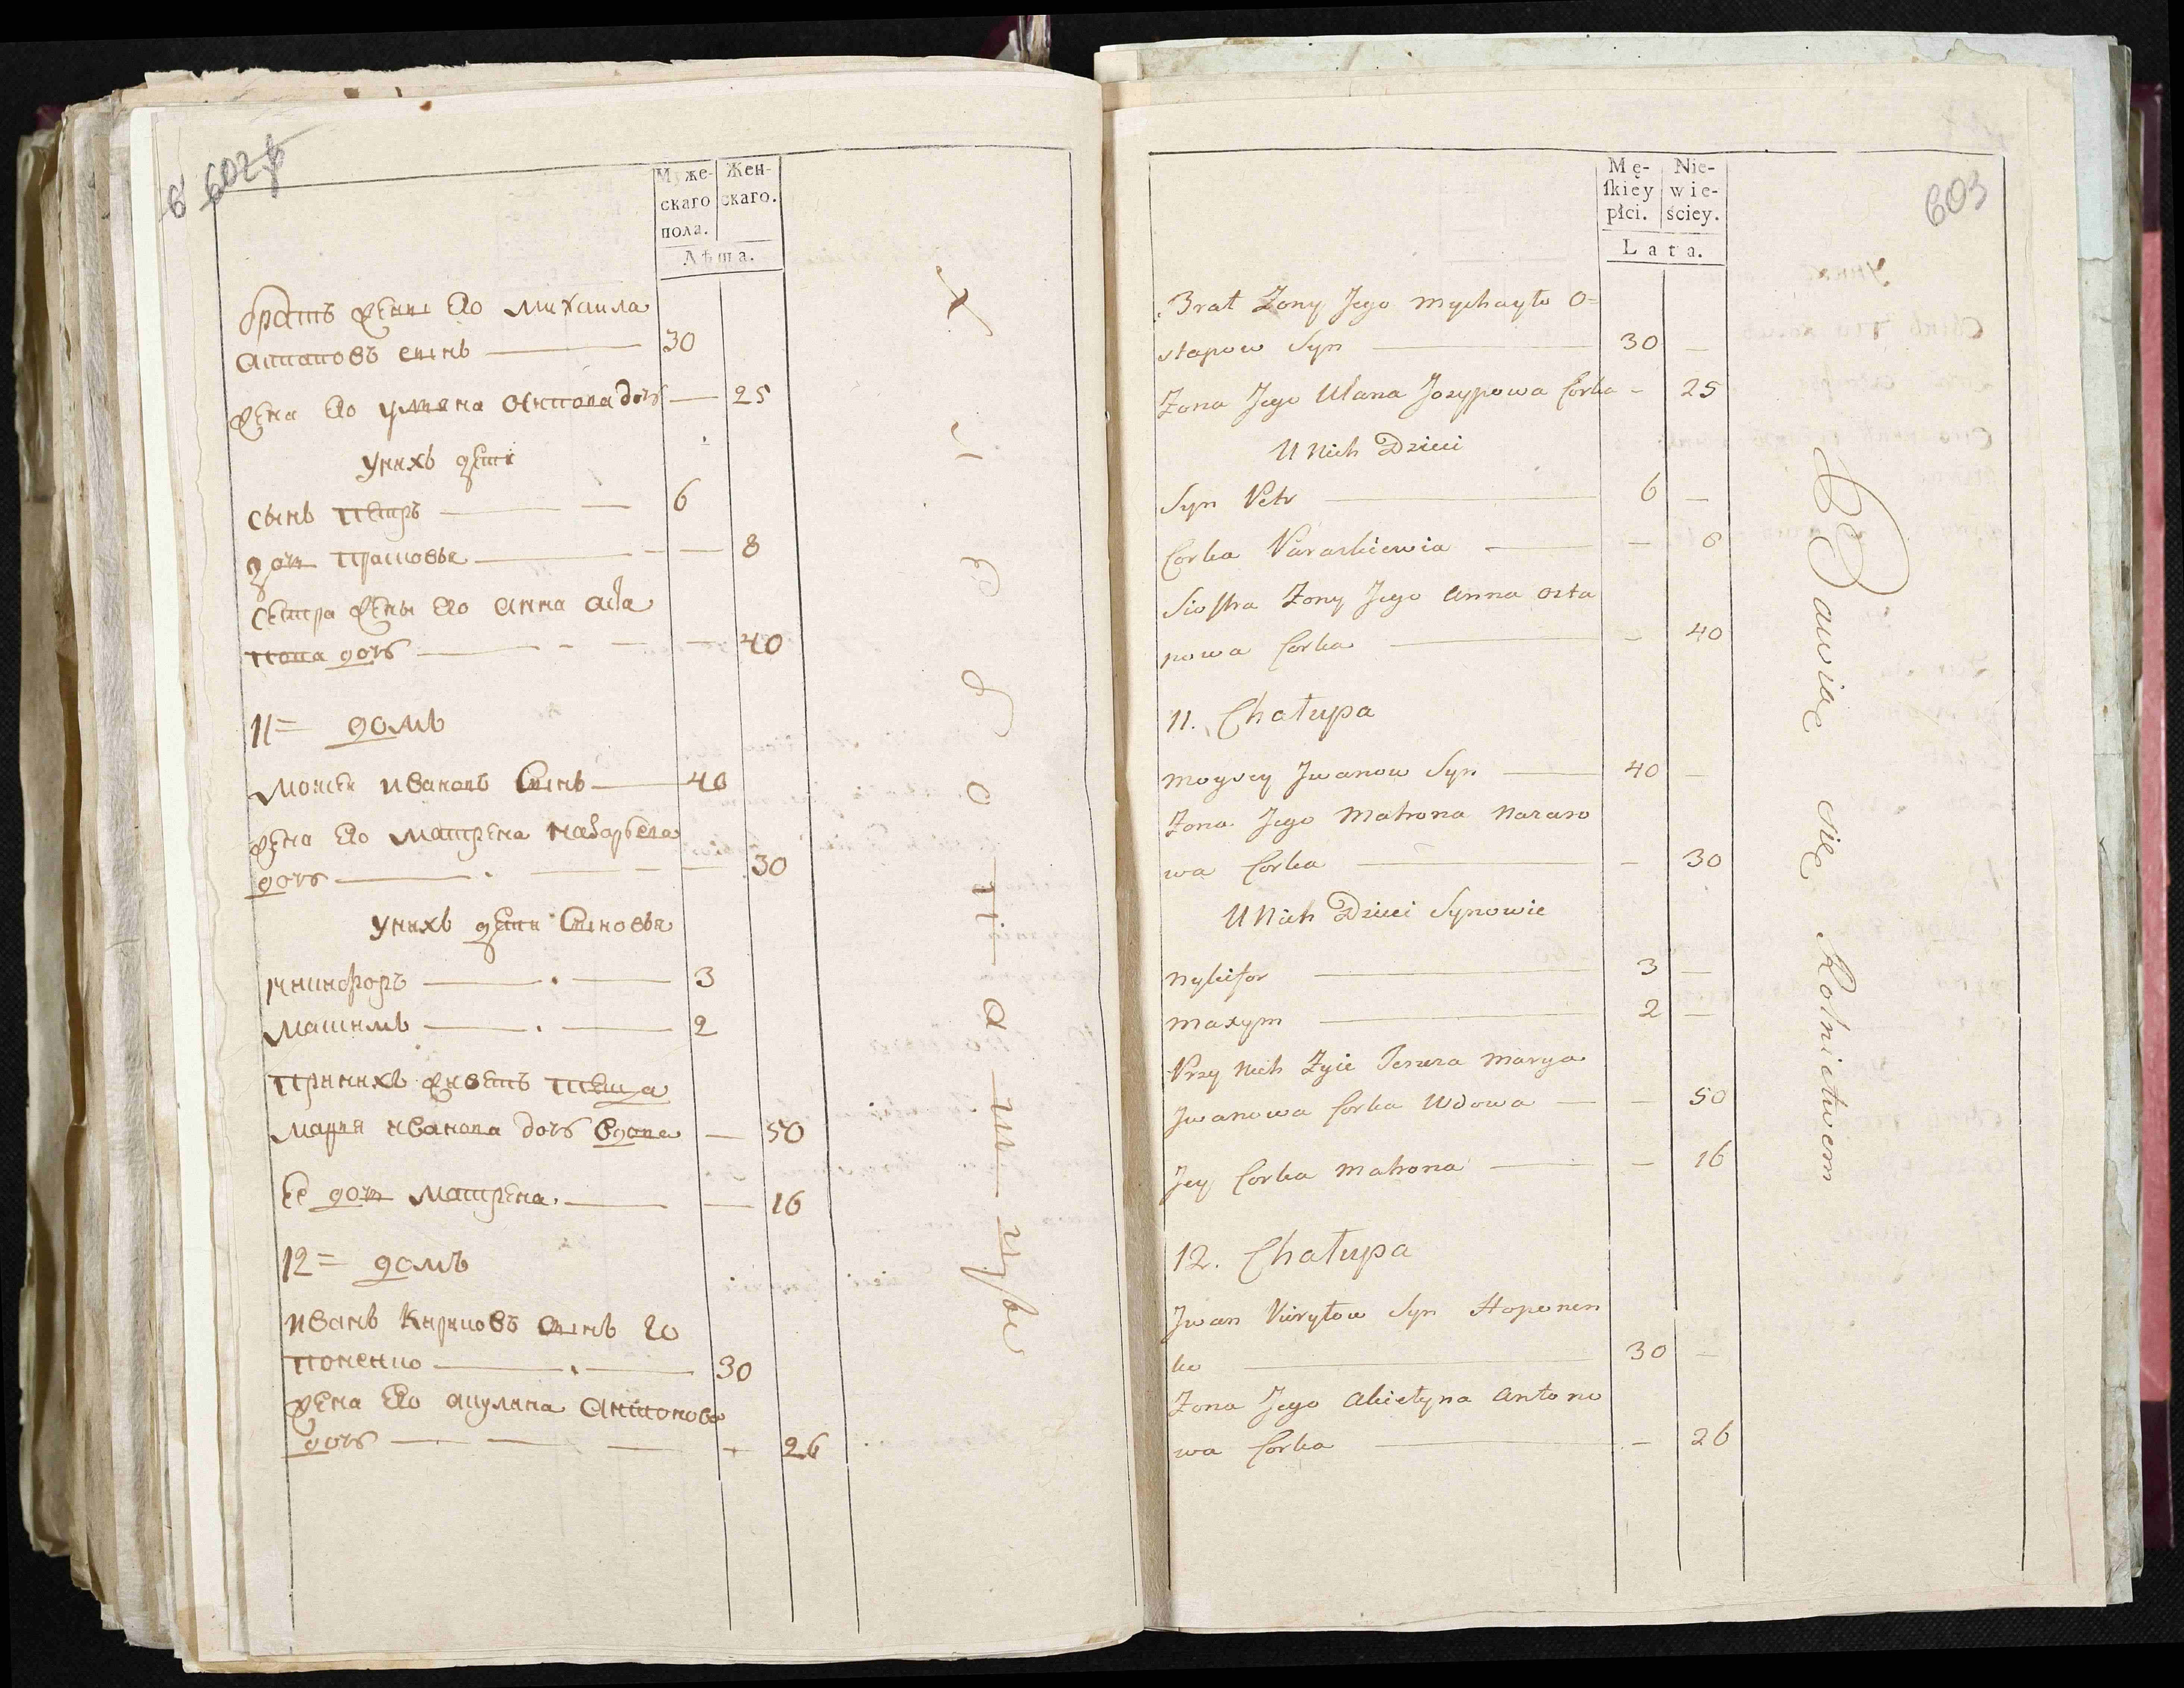 602
Муже-
скаго
пола.
Жен-
скаго.
Лѣта.
братъ жены Его михаила
астаповъ сынъ 30
жена Его ульяна осипова дочь — 25
унихъ дети
сынъ петръ 6
дочь прасковья — 8
сестра жены Его анна аста
пова дочь — 40
11= домъ
мойсей ивановъ сынъ 40
жена Его матрена назарова
дочь — 30
унихъ дети сыновья
никифоръ 3
максимъ 2
принихъ живетъ теща
марья иванова дочь вдова — 50
Ее дочь матрена — 16
12= домъ
иванъ кириловъ сынъ го
поненко 30
жена Его акулина антонова
дочь — 26
603
Mę-
ſkiey
płci.
Nie-
wie-
ściey.
Lata.
Brat Zony Jego Mychayło O=
stapow Syn 30 —
Zona Jego Ulana Jozypowa Corka — 25
U Nich Dzieci
Syn Petr 6 —
Corka Paraskiewia — 8
Siostra Zony Jego Anna Osta
powa Corka — 40
11. Chałupa
Moysey Jwanow Syn 40 —
Zona Jego Matrona Nazaro
wa Corka — 30
U Nich Dzieci Synowie
Nykifor 3 —
Maxym 2 —
Przy Nich Zyie Teszcza Marya
Jwanowa Corka Wdowa — 50
Jey Corka Matrona — 16
12. Chałupa
Jwan Kiryłow Syn Hoponen
ko 30 —
Zona Jego Akietyna Antono
wa Corka — 26
Bawią się Rolnictwem